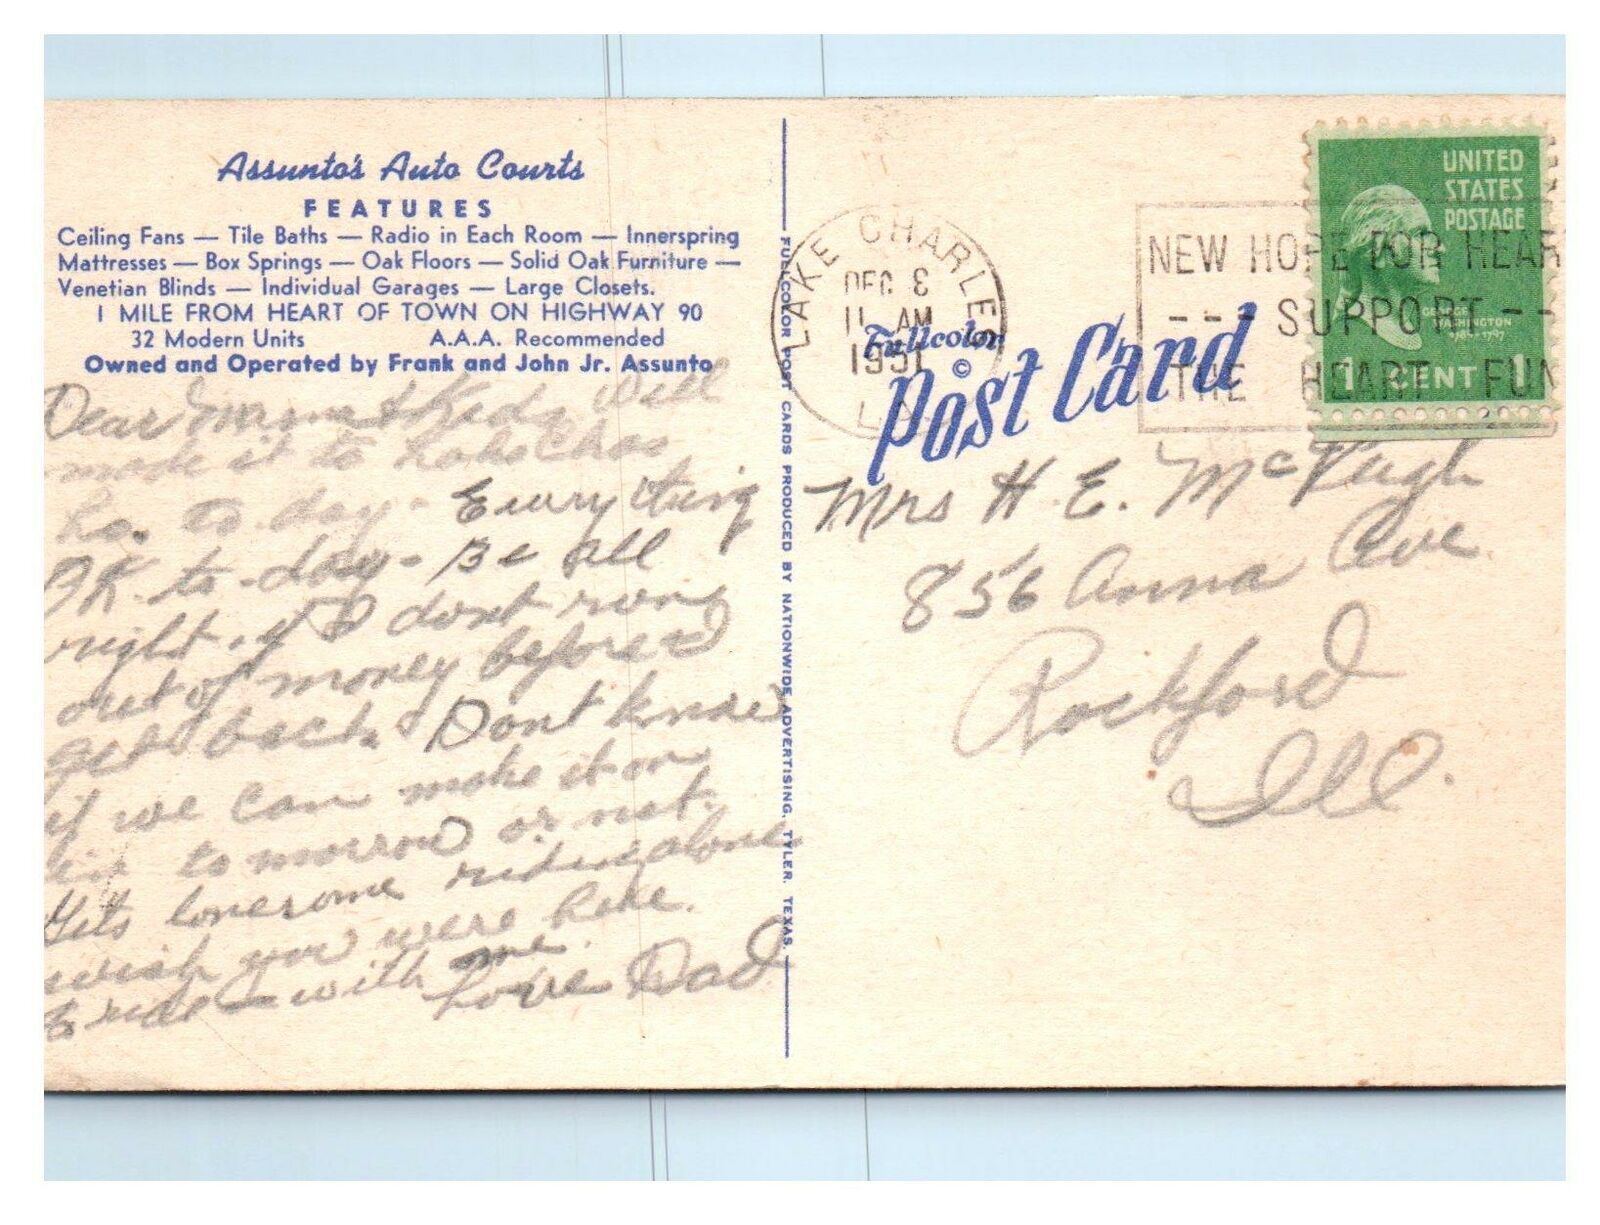 Assunto's Auto Courts
FEATURES
Ceiling Fans — Tile Baths — Radio in Each Room — Innerspring
Mattresses — Box Springs — Oak Floors — Solid Oak Furniture —
Venetian Blinds — Individual Garages — Large Closets.
1 MILE FROM HEART OF TOWN ON HIGHWAY 90
32 Modern Units A.A.A. Recommended
Owned and Operated by Frank and John Jr. Assunto
Dear Mama & Kids, Well
made it to Lake Chas
La. to-day - Everything
OK to-day - Be all
right if I dont run
out of money before I
get back. Dont know
if we can make it on
in to morrow or not.
Gets lonesome riding alone
wish you were here
to ride with me.
Love Dad
FULLCOLOR POST CARDS PRODUCED BY NATIONWIDE ADVERTISING, TYLER, TEXAS.
LAKE CHARLES
DEC 8
11 AM
1951
LA
Fullcolor ©
Post Card
NEW HOPE FOR HEAR
--- SUPPORT --
THE HEART FUN
UNITED
STATES
POSTAGE
GEORGE
WASHINGTON
1789-1797
1 CENT 1
Mrs H. E. McVeigh
856 Anna Ave
Rockford
Ill.